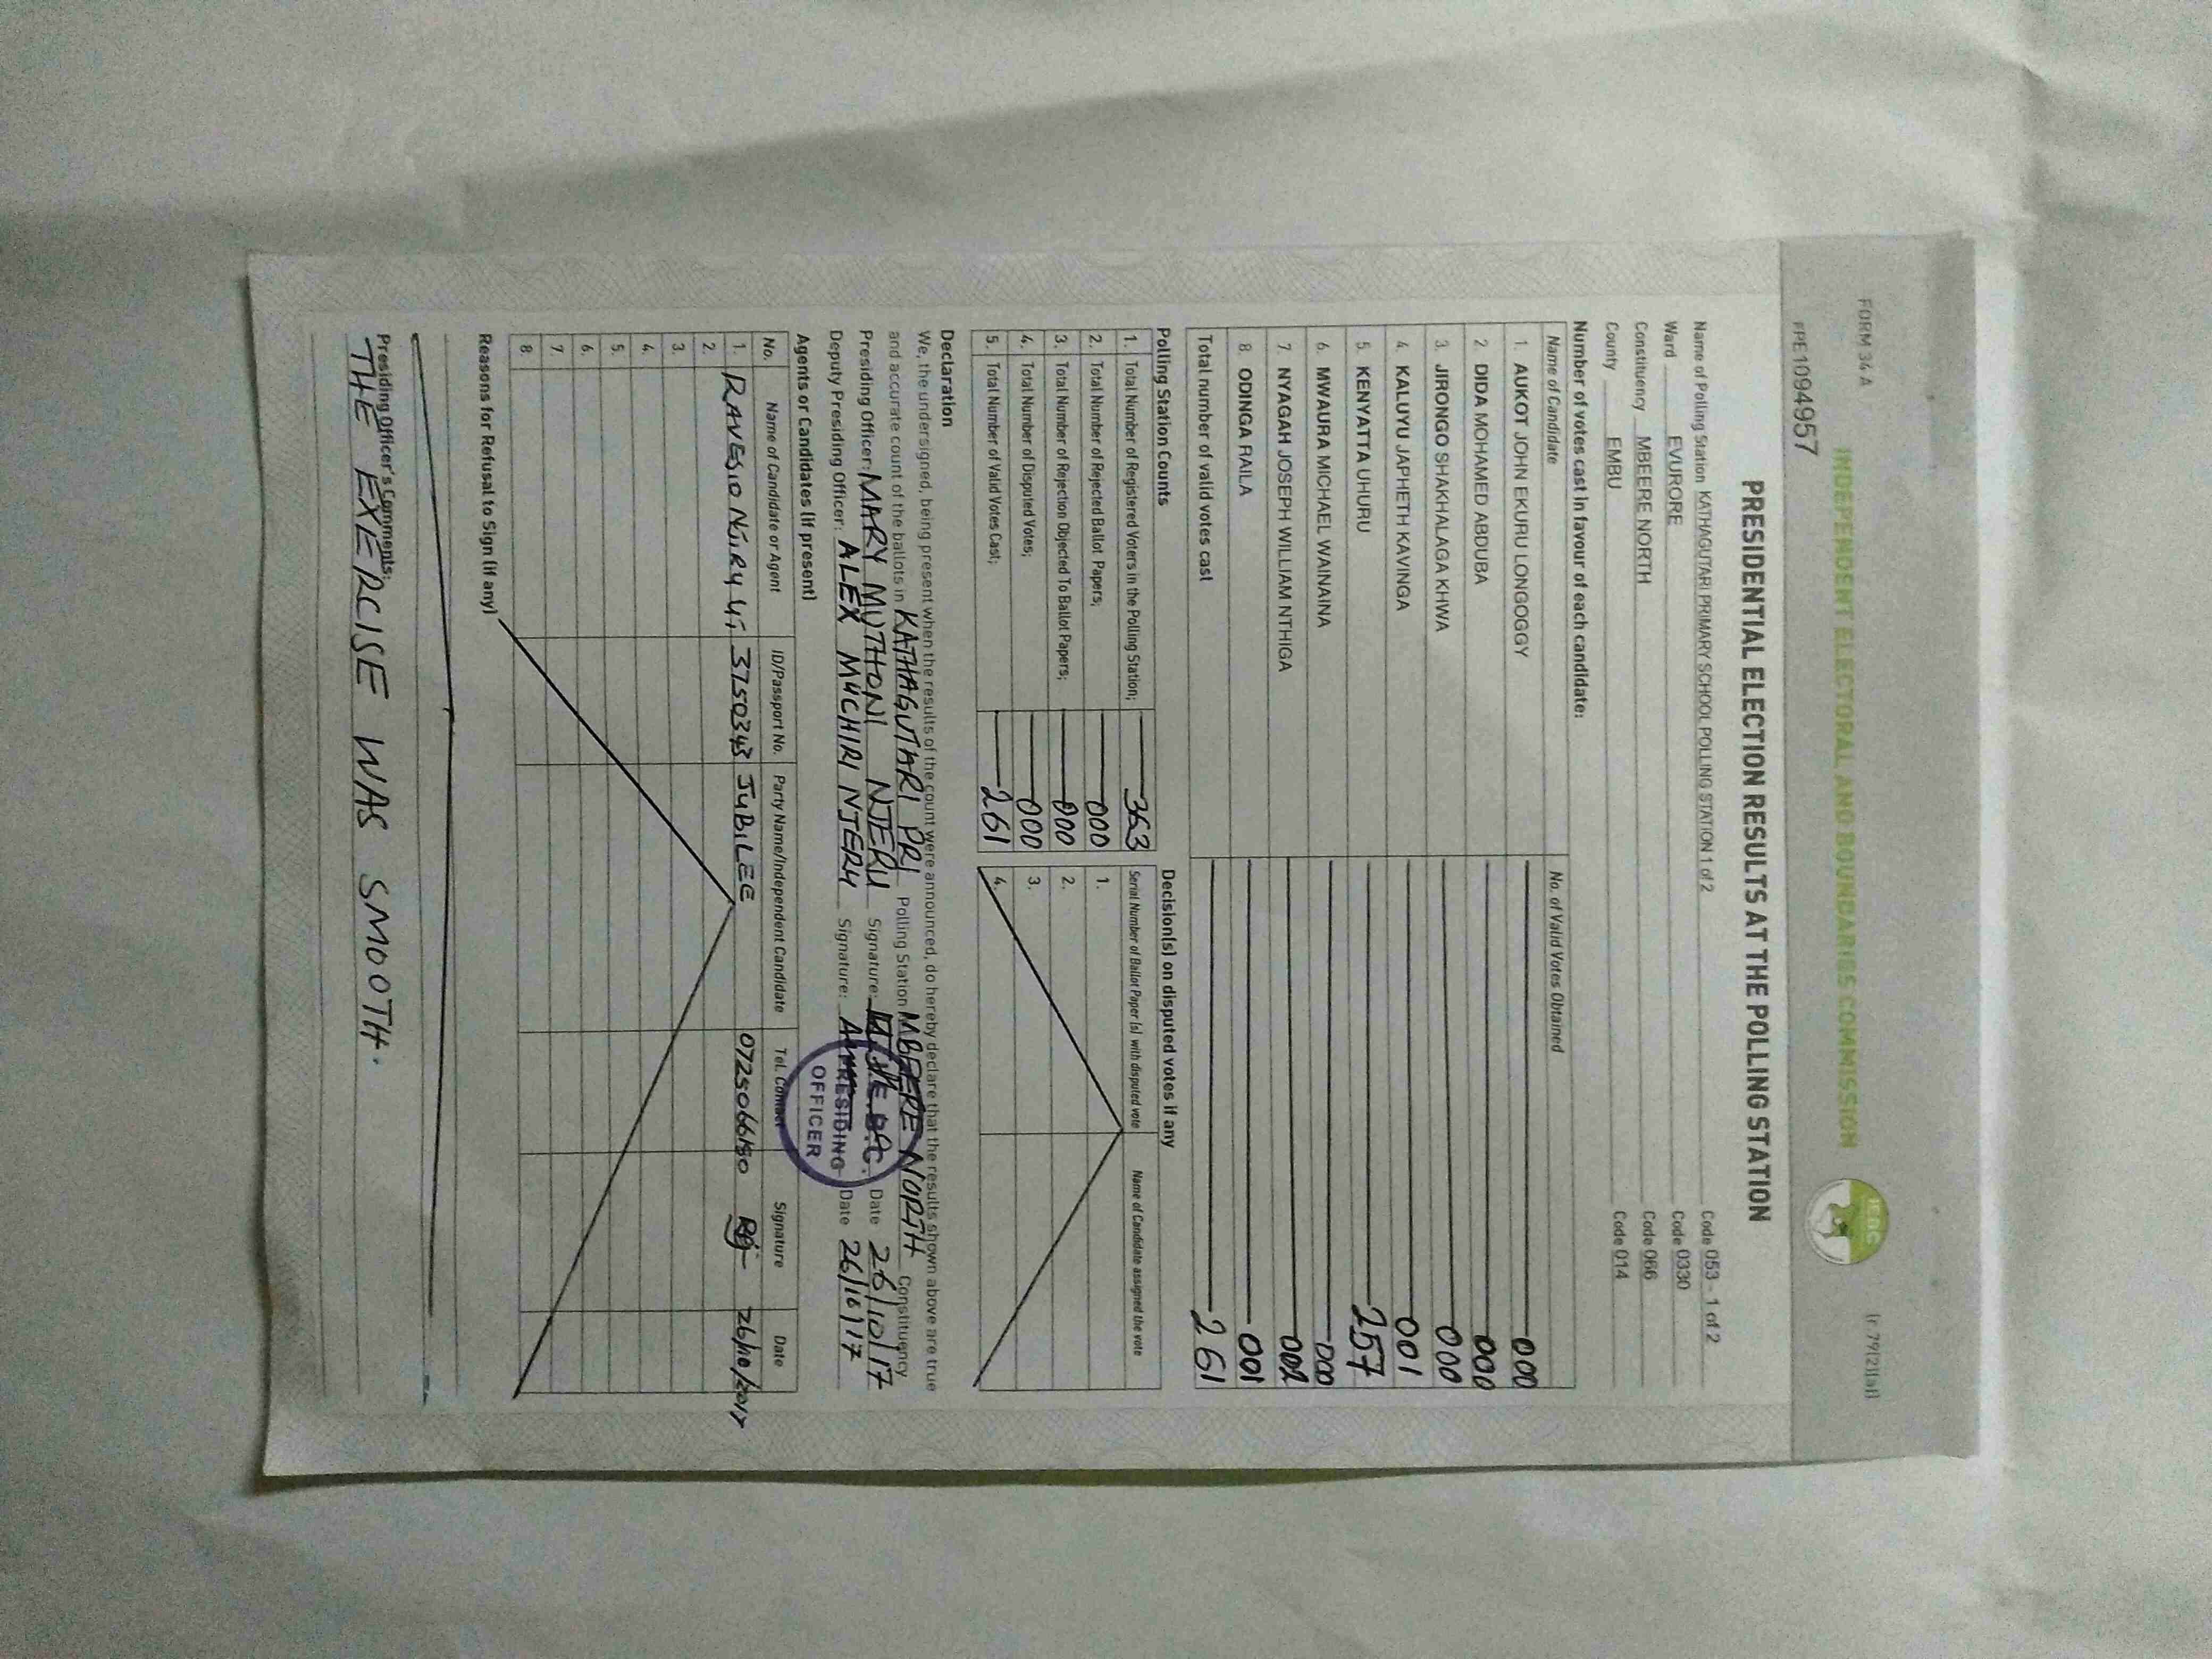 FORM 34 A (r. 79(2)(a))
INDEPENDENT ELECTORAL AND BOUNDARIES COMMISSION
IEBC
PPE1094957
PRESIDENTIAL ELECTION RESULTS AT THE POLLING STATION
Name of Polling Station KATHAGUTARI PRIMARY SCHOOL POLLING STATION 1 of 2 Code 053 - 1 of 2
Ward EVURORE Code 0330
Constituency MBEERE NORTH Code 066
County EMBU Code 014
Number of votes cast in favour of each candidate:
Name of Candidate No. of Valid Votes Obtained
1. AUKOT JOHN EKURU LONGOGGY 000
2. DIDA MOHAMED ABDUBA 000
3. JIRONGO SHAKHALAGA KHWA 000
4. KALUYU JAPHETH KAVINGA 001
5. KENYATTA UHURU 257
6. MWAURA MICHAEL WAINAINA 000
7. NYAGAH JOSEPH WILLIAM NTHIGA 002
8. ODINGA RAILA 001
Total number of valid votes cast 261
Polling Station Counts
1. Total Number of Registered Voters in the Polling Station; 363
2. Total Number of Rejected Ballot Papers; 000
3. Total Number of Rejection Objected To Ballot Papers; 000
4. Total Number of Disputed Votes; 000
5. Total Number of Valid Votes Cast; 261
Decision(s) on disputed votes if any
Serial Number of Ballot Paper (s) with disputed vote Name of Candidate assigned the vote
1.
2.
3.
4.
Declaration
We, the undersigned, being present when the results of the count were announced, do hereby declare that the results shown above are true
and accurate count of the ballots in KATHAGUTARI PRI Polling Station MBEERE NORTH Constituency
Presiding Officer: MARY MUTHONI NJERU Signature: Date 26/10/17
Deputy Presiding Officer: ALEX MUCHIRI NJERU Signature: Date 26/10/17
PRESIDING
OFFICER
Agents or Candidates (if present)
No. Name of Candidate or Agent ID/Passport No. Party Name/Independent Candidate Tel. Contact Signature Date
1. 3750343 JUBILEE 0725066150 26/10/2017
2.
3.
4.
5.
6.
7.
8.
Reasons for Refusal to Sign (if any)
Presiding Officer's Comments:
THE EXERCISE WAS SMOOTH.